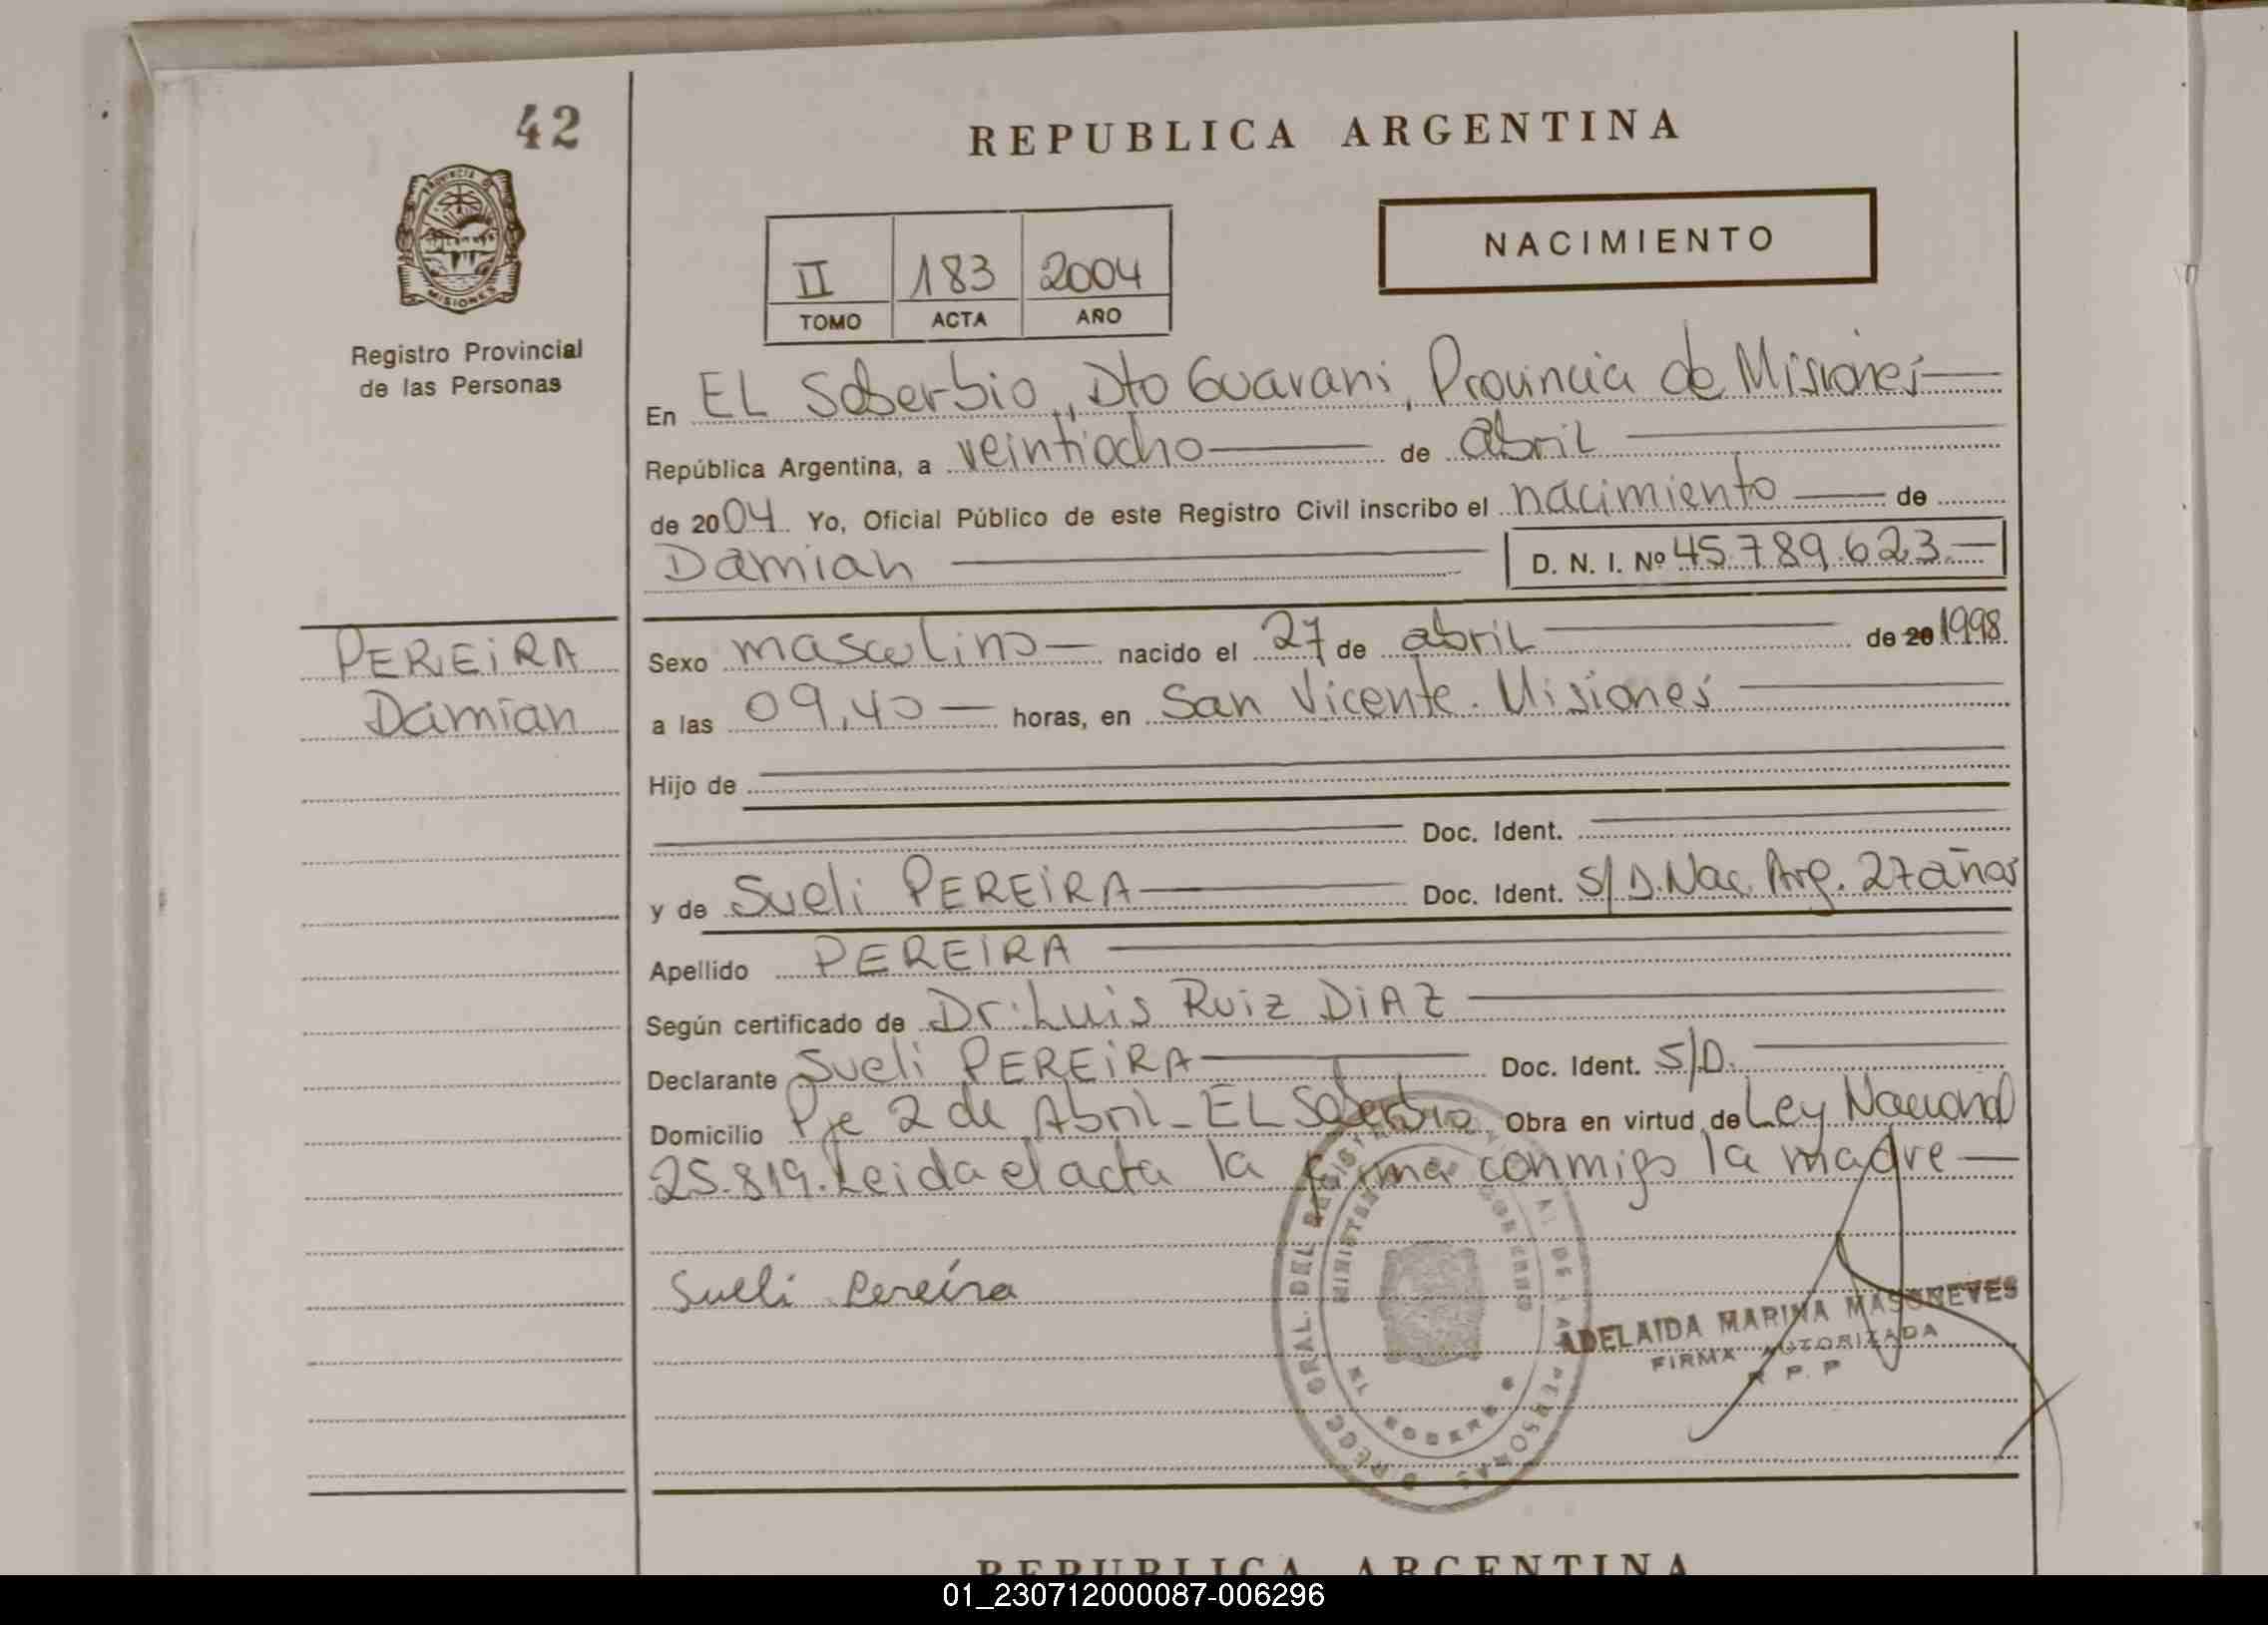 42
REPUBLICA ARGENTINA
PROVINCIA DE
MISIONES
Registro Provincial
de las Personas
NACIMIENTO
II 183 2004
TOMO ACTA AÑO
En EL Soberbio, Dto Guarani, Provincia de Misiones
República Argentina, a veintiocho de abril
de 2004 Yo, Oficial Público de este Registro Civil inscribo el nacimiento de
Damian D. N. I. Nº 45.789.623.
PEREIRA
Damian
Sexo masculino nacido el 27 de abril de 20 1998
a las 09,40 horas, en San Vicente. Misiones
Hijo de
Doc. Ident.
y de Sueli PEREIRA Doc. Ident. S/D. Nac. Arg. 27 años
Apellido PEREIRA
Según certificado de Dr. Luis Ruiz DIAZ
Declarante Sueli PEREIRA Doc. Ident. S/D.
Domicilio Pje 2 de Abril - EL Soberbio Obra en virtud de Ley Nacional
25.819. Leida el acta la firma conmigo la madre
Sueli Pereira
DIRECC GRAL. DEL REGISTRO PROVINCIAL DE LAS PERSONAS
MINISTERIO DE GOBIERNO
ADELAIDA MARINA MASGNEVES
FIRMA AUTORIZADA
R P. P
REPUBLICA ARGENTINA
01_230712000087-006296